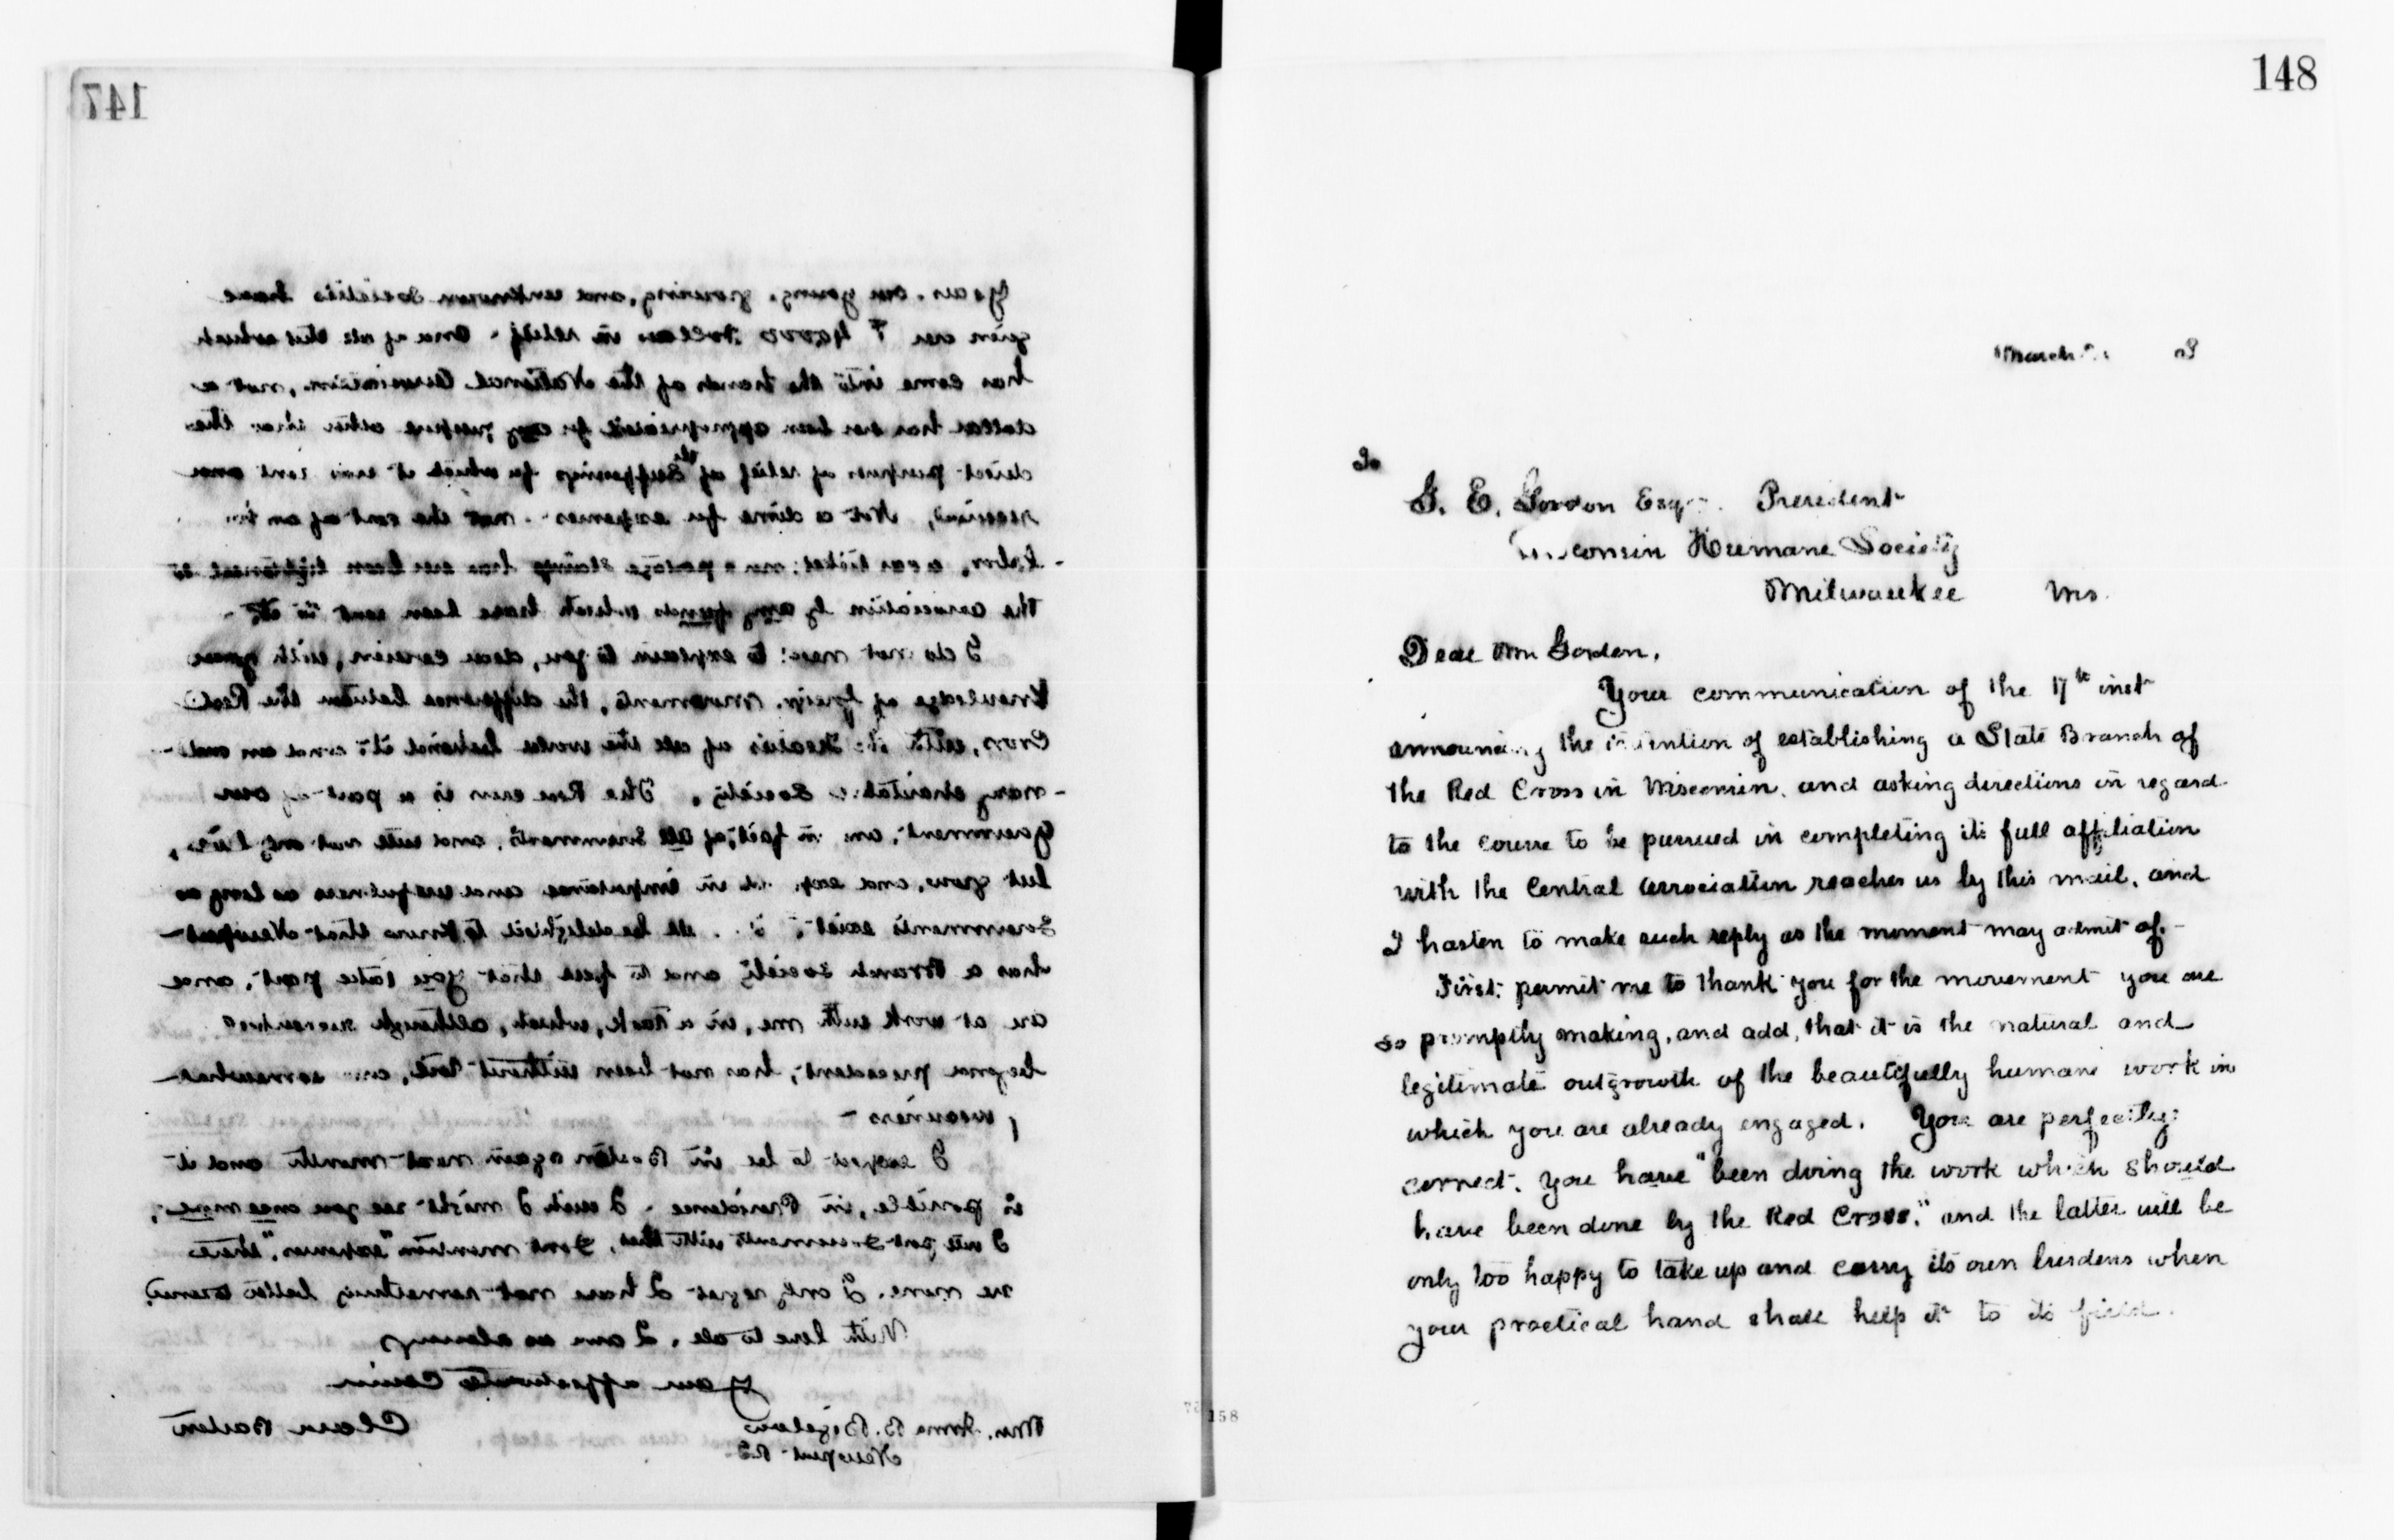 147
Year. our young, growing, and unknown societies have
given over 40000 dollars in relief. One of all this which
has come into the hands of the National Association, not a
dollar has ever been appropriated for any purpose other than the
direct purposes of relief of the sufferings for which it was sent and
received, Not a dime for expenses not the cent of an
Labor, a car ticket, nor a postage stamp has ever been lightened to
the association by any funds which have been sent to it.
I do not need to explain to you, dear cousin, with your
knowledge of foreign movements, the difference between the Red
Cross, with its treaties of all the world behind it and an ordi-
nary charitable Society. The Red Cross is a part of our
Government, as in fact, of all Governments, and will not only live,
but grow, and in importance and usefulness as long as
Governments exist, be delighted to know that Newport
has a Branch society and to feel that you take part, and
are at work with me, in a task, which, although successful
beyond precedent, has not been without toil, and somewhat
weariness -
I expect to be in Boston again next month and it
is possible, in Providence. I wish I might see you once more,
I will put documents with this, Dont mention "expenses", there
are none. I only regret I have not something better to send.
With love to all, I am as always
Your affectionate Cousin
Clara Barton
Mrs. Anna B. Bigelow
Newport R.I.
148
March
To
G. E. Gordon Esqr. President
Wisconsin Humane Society
Milwaukee Wis.
Dear Mr Gordon.
Your communication of the 17th inst
announcing the intention of establishing a State Branch of
the Red Cross in Wisconsin, and asking directions in regard
to the course to be pursued in completing its full affiliation
with the Central Association reaches us by this mail, and
I hasten to make such reply as the moment may admit of. -
First: permit me to thank you for the movement you are
so promptly making, and add, that it is the natural and
legitimate outgrowth of the beautifully humane work in
which you are already engaged. You are perfectly
correct. You have "been doing the work which should
have been done by the Red Cross," and the latter will be
only too happy to take up and carry its own burdens when
your practical hand shall help it to its field.
158